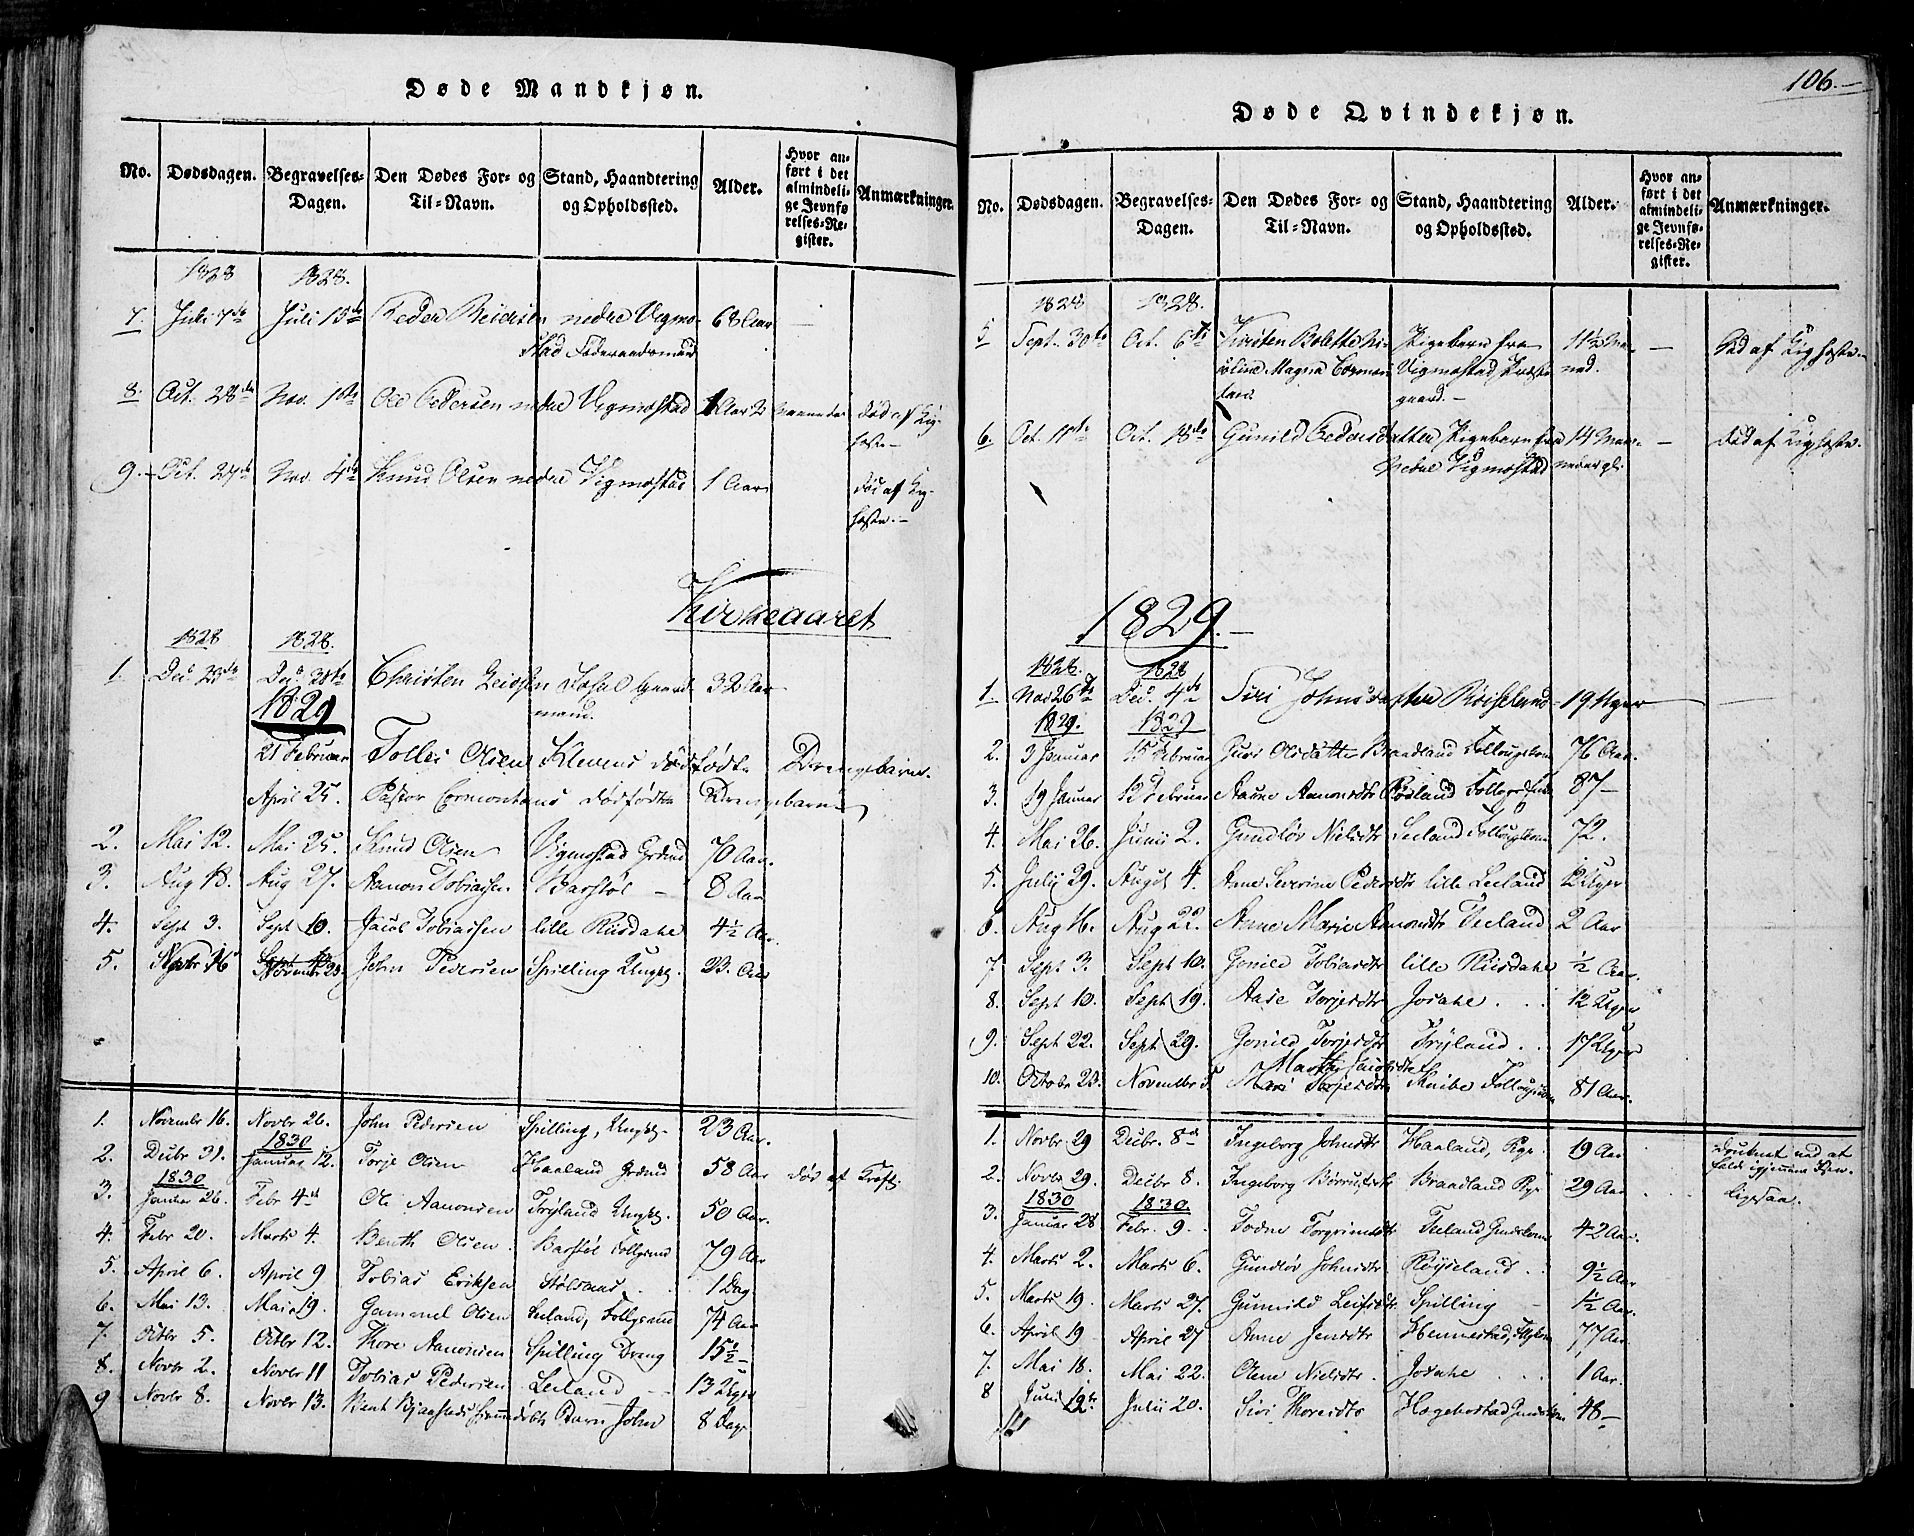 Døde Mandkjøn.
No. Dødsdagen. Begravelses-Dagen. Den Dødes For- og Til-Navn. Stand, Haandtering og Opholdssted. Alder. Hvor anført i det almindelige Jevnførelses-Register. Anmærkninger.
1828 1828.
7. Juli 7de Juli 15de Peder Reiersen nedre Vigmo- 68 Aar —
stad Føderaadsmand
8. Oct. 28de Nov. 1ste Ole Pedersen nedre Vigmostad 1 Aar 2 Maaneder død af Kig-
hoste —
9. Oct. 27de Nov. 4de Knud Olsen nedre Vigmostad 1 Aar død af Kig-
hoste. —
Kirkeaaret
1828 1828.
1. Dec. 23de Dec. 28de Christen Reiersen Josal Gaard- 32 Aar
mand.
1829
21 Februar Tollef Olsen Klevens dødfødte Drengebarn.
April 25. Pastor Cormontans dødfødte Drengebarn
2. Mai 12. Mai 25. Knud Olsen Vigmostad Grdmd 70 Aar.
3. Aug 18. Aug 27. Aanon Tobiassen Barstøl — 8 Aar
4. Sept 3. Sept 10. Jacob Tobiassen lille Riisdahl 4½ Aar.
5. Novbr 16 November 23. John Pedersen Spilling Ungk. 23. Aar
1. Novembr 16. Novbr 26. John Pedersen Spilling, Ungk. 23 Aar.
1830
2. Decbr 31. Januar 12. Torje Olsen Haaland Grdmd 58 Aar død af Kræft.
1830
3. Januar 26. Febr 4de Ole Aanonsen Trÿland Ungk. 50 Aar.
4. Febr 20. Marts 4. Benth Olsen Barstøl Follgmd 79 Aar
5. April 6. April 9 Tobias Eriksen Stølsaas . . 1 Dag
6. Mai 13. Mai 19. Gammel Olsen Leeland, Follgmd 74 Aar
7. Octbr 5. Octbr 12. Thore Aanonsen Spilling Dreng 15½ —
8. Novbr 2. Novbr 11 Tobias Pedersen Leeland — 13 Uger
9 Novbr 8. Novbr 13. Bent Bjaastads Barn John 8 Dage
106. —
Døde Qvindekjøn.
No. Dødsdagen. Begravelses-Dagen. Den Dødes For- og Til-Navn. Stand, Haandtering og Opholdssted. Alder. Hvor anført i det almindelige Jevnførelses-Register. Anmærkninger.
1828 1828.
5 Sept. 30te Oct. 6te Kirsten Bolette Ni- Pigebarn fra 11½ Maa- — Død af Kighoste.
coline Magna Cormon- Vigmostad Præste- ned.
tan. gaard. —
6. Oct. 11te Oct. 18de Gunild Pedersdatter Pigebarn fra 14 Maa- — død af Kighoste.
nedre Vigmostad neder gl.
1829. —
1828. 1828
1. Nov 26de Dec. 4de Siri Johnsdatter Røiseland 19 Uger
1829. 1829
2. 3 Januar 15 Februar Guri Olsdatter Braadland Follougskone 76 Aar.
3. 19 Januar 12 Februar Aanne Aanonsdtr Røiland 87 —
4. Mai 26. Junii 2. Gundløv Nielsdtr Leeland Follougskone 72.
5. Julij 29. August 4. Anne Severine Pedersdtr lille Leeland 12 Uger
6. Aug 16. Aug 22. Anne Marie Aanonsdtr Leeland 2 Aar
7 Sept 3. Sept 10. Gonild Tobiasdtr lille Riisdahl ½ Aar.
8. Sept 10. Sept 19. Aase Torjesdtr Josahl . . . 12 Uger
9. Sept 22. Sept 29. Gonild Torjesdtr Trÿland . . 17 Uger
Marthe Jacobsdtr
10. Octobr 23. Novembr 5. Mari Torjesdtr Knibe Follougskone 81 Aar.
1. Novbr 29 Decbr. 8de Ingeborg Johnsdtr Haaland, Pige. 19 Aar Druknet ved at
falde igjennem Isen.
2. Novbr 29. Decbr 8. Ingeborg Børrusdtr Braadland Pige 29 Aar ligesaa.
1830 1830
3. Januar 28 Febr. 9. Todne Torgrimsdtr Leeland 42 Aar.
4. Marts 2. Marts 6. Gundlør Johnsdtr Røyseland . . 9½ Aar
5. Marts 19. Marts 27. Gunvild Leifsdtr Spilling — 1½ Aar.
6. April 19 April 27 Anne Jensdtr Hennestad, 77 Aar
7. Mai 18. Mai 22. Olene Nielsdtr Josahl . . . 1 Aar.
8 Julii 12te Julii 20. Siri Thoresdtr Hægebostad 48 —